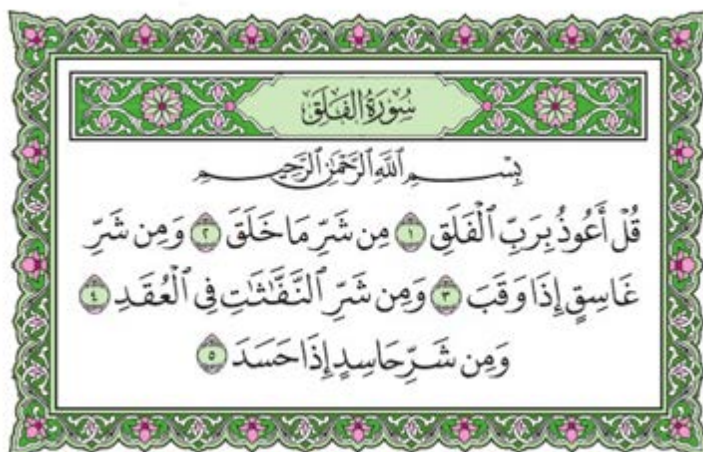 سُورَةُ الفَلَقِ
بِسْمِ اللَّهِ الرَّحْمَٰنِ الرَّحِيمِ
قُلْ أَعُوذُ بِرَبِّ ٱلْفَلَقِ ١ مِن شَرِّ مَا خَلَقَ ٢ وَمِن شَرِّ
غَاسِقٍ إِذَا وَقَبَ ٣ وَمِن شَرِّ ٱلنَّفَّٰثَٰتِ فِي ٱلْعُقَدِ ٤
وَمِن شَرِّ حَاسِدٍ إِذَا حَسَدَ ٥